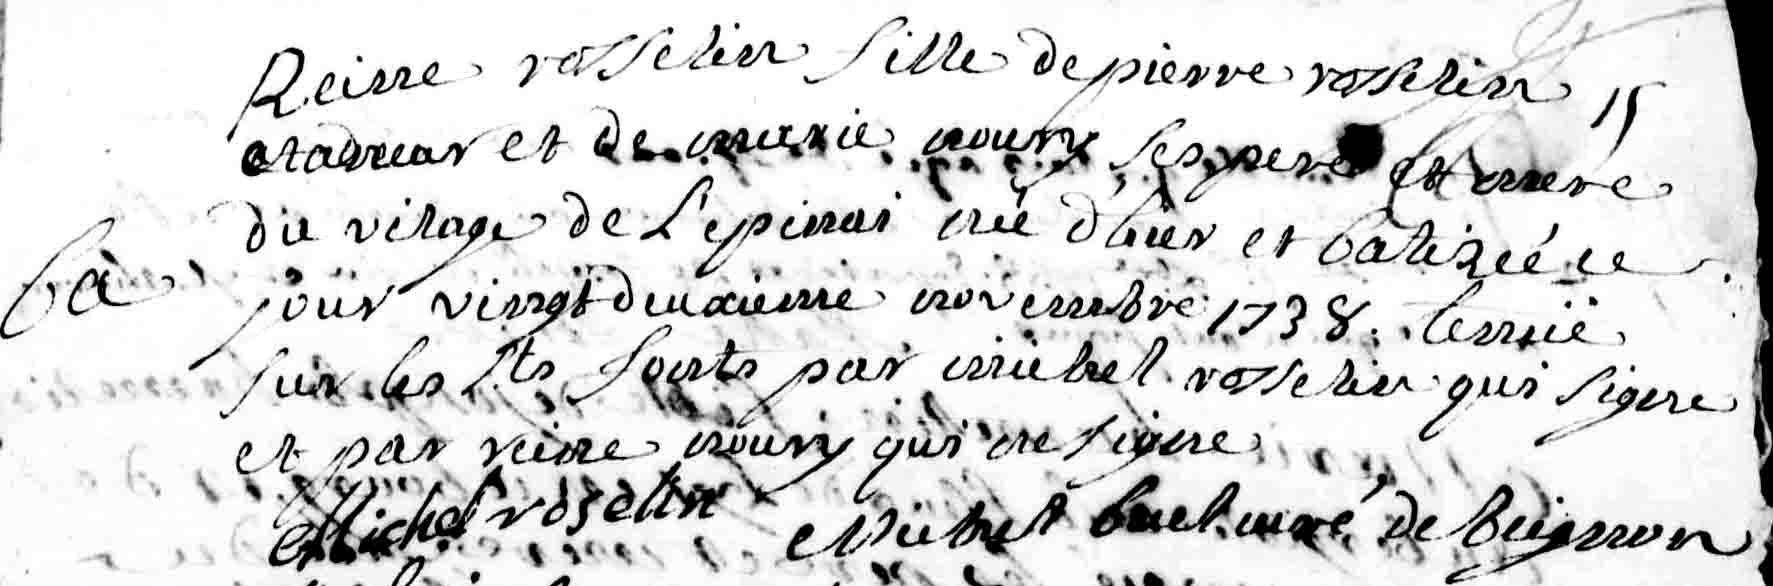 Reine rosselin fille de pierre rosselin 15
et de marie noury ses pere et mere
du vilage de L'epinai née d'hier et batizée ce
ba jour vingtdeuxieme novembre 1738. tenuë
sur les fts fonts par michel rosselin qui signe
et par reine noury qui ne signe
Michel roselin Michel curé de beignon